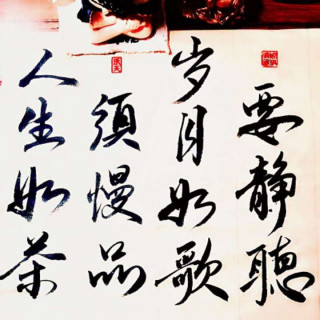 人生如茶
須慢品
岁月如歌
要静聽